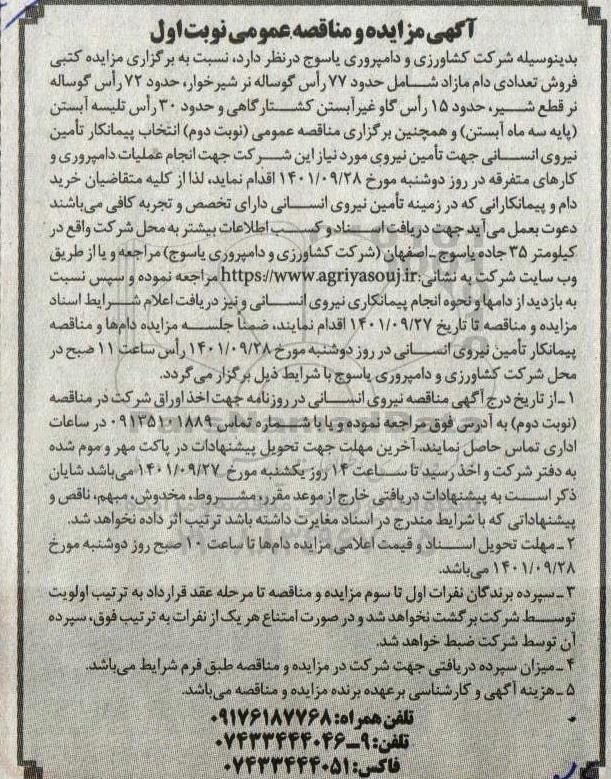 آگهی مزایده و مناقصه عمومی نوبت اول
بدینوسیله شرکت کشاورزی و دامپروری یاسوج درنظر دارد، نسبت به برگزاری مزایده کتبی
فروش تعدادی دام مازاد شامل حدود ۷۷ رأس گوساله نر شیرخوار، حدود ۷۲ رأس گوساله
نر قطع شیر، حدود ۱۵ رأس گاو غیرآبستن کشتارگاهی و حدود ۳۰ رأس تلیسه آبستن
(پایه سه ماه آبستن) و همچنین برگزاری مناقصه عمومی (نوبت دوم) انتخاب پیمانکار تأمین
نیروی انسانی جهت تأمین نیروی مورد نیاز این شرکت جهت انجام عملیات دامپروری و
کارهای متفرقه در روز دوشنبه مورخ ۱۴۰۱/۰۹/۲۸ اقدام نماید، لذا از کلیه متقاضیان خرید
دام و پیمانکارانی که در زمینه تأمین نیروی انسانی دارای تخصص و تجربه کافی می‌باشند
دعوت بعمل می‌آید جهت دریافت اسناد و کسب اطلاعات بیشتر به محل شرکت واقع در
کیلومتر ۳۵ جاده یاسوج ـ اصفهان (شرکت کشاورزی و دامپروری یاسوج) مراجعه و یا از طریق
وب سایت شرکت به نشانی: https://www.agriyasouj.ir مراجعه نموده و سپس نسبت
به بازدید از دامها و نحوه انجام پیمانکاری نیروی انسانی و نیز دریافت اعلام شرایط اسناد
مزایده و مناقصه تا تاریخ ۱۴۰۱/۰۹/۲۷ اقدام نمایند، ضمناً جلسه مزایده دام‌ها و مناقصه
پیمانکار تأمین نیروی انسانی در روز دوشنبه مورخ ۱۴۰۱/۰۹/۲۸ رأس ساعت ۱۱ صبح در
محل شرکت کشاورزی و دامپروری یاسوج با شرایط ذیل برگزار می‌گردد.
۱ ـ از تاریخ درج آگهی مناقصه نیروی انسانی در روزنامه جهت اخذ اوراق شرکت در مناقصه
(نوبت دوم) به آدرس فوق مراجعه نموده و یا با شماره تماس ۰۹۱۳۵۱۰۱۸۸۹ در ساعات
اداری تماس حاصل نمایند. آخرین مهلت جهت تحویل پیشنهادات در پاکت مهر و موم شده
به دفتر شرکت و اخذ رسید تا ساعت ۱۴ روز یکشنبه مورخ ۱۴۰۱/۰۹/۲۷ می‌باشد شایان
ذکر است به پیشنهادات دریافتی خارج از موعد مقرر، مشروط، مخدوش، مبهم، ناقص و
پیشنهاداتی که با شرایط مندرج در اسناد مغایرت داشته باشد ترتیب اثر داده نخواهد شد.
۲ ـ مهلت تحویل اسناد و قیمت اعلامی مزایده دام‌ها تا ساعت ۱۰ صبح روز دوشنبه مورخ
۱۴۰۱/۰۹/۲۸ می‌باشد.
۳ ـ سپرده برندگان نفرات اول تا سوم مزایده و مناقصه تا مرحله عقد قرارداد به ترتیب اولویت
توسط شرکت برگشت نخواهد شد و در صورت امتناع هر یک از نفرات به ترتیب فوق، سپرده
آن توسط شرکت ضبط خواهد شد.
۴ ـ میزان سپرده دریافتی جهت شرکت در مزایده و مناقصه طبق فرم شرایط می‌باشد.
۵ ـ هزینه آگهی و کارشناسی برعهده برنده مزایده و مناقصه می‌باشد.
تلفن همراه: ۰۹۱۷۶۱۸۷۷۶۸
تلفن: ۹ـ۰۷۴۳۳۴۴۴۰۴۶
فاکس: ۰۷۴۳۳۴۴۴۰۵۱